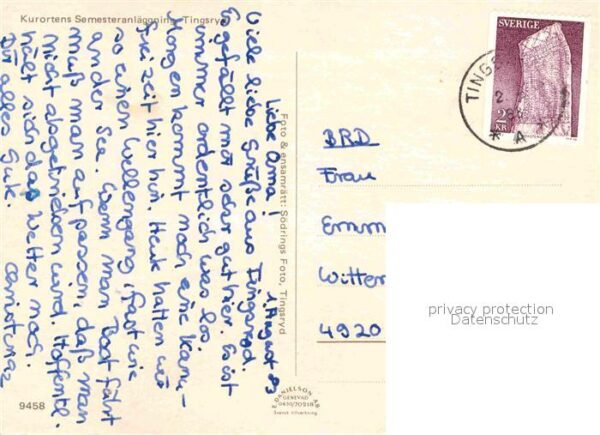 Kurortens Semesteranläggning, Tingsryd
1. August 83
Liebe Oma!
Viele liebe Grüße aus Tingsryd.
Es gefällt mir sehr gut hier. Es ist
immer ordentlich was los.
Morgen kommt noch eine Kanu-
freizeit hier hin. Heute hatten wir
so einen Wellengang, fast wie
an der See. Wenn man Boot fährt
muß man aufpassen, daß man
nicht abgetrieben wird. Hoffentl.
hält sich das Wetter noch.
Dir alles Gute.
Christina
Foto & ensamrätt: Södrings Foto, Tingsryd
SVERIGE
2
KR
TINGS
2
83
* A *
BRD
Frau
Emm
Witter
4920
privacy protection
Datenschutz
9458
E. DANIELSON AB
GENEVAD
0430/70218
Svensk tillverkning